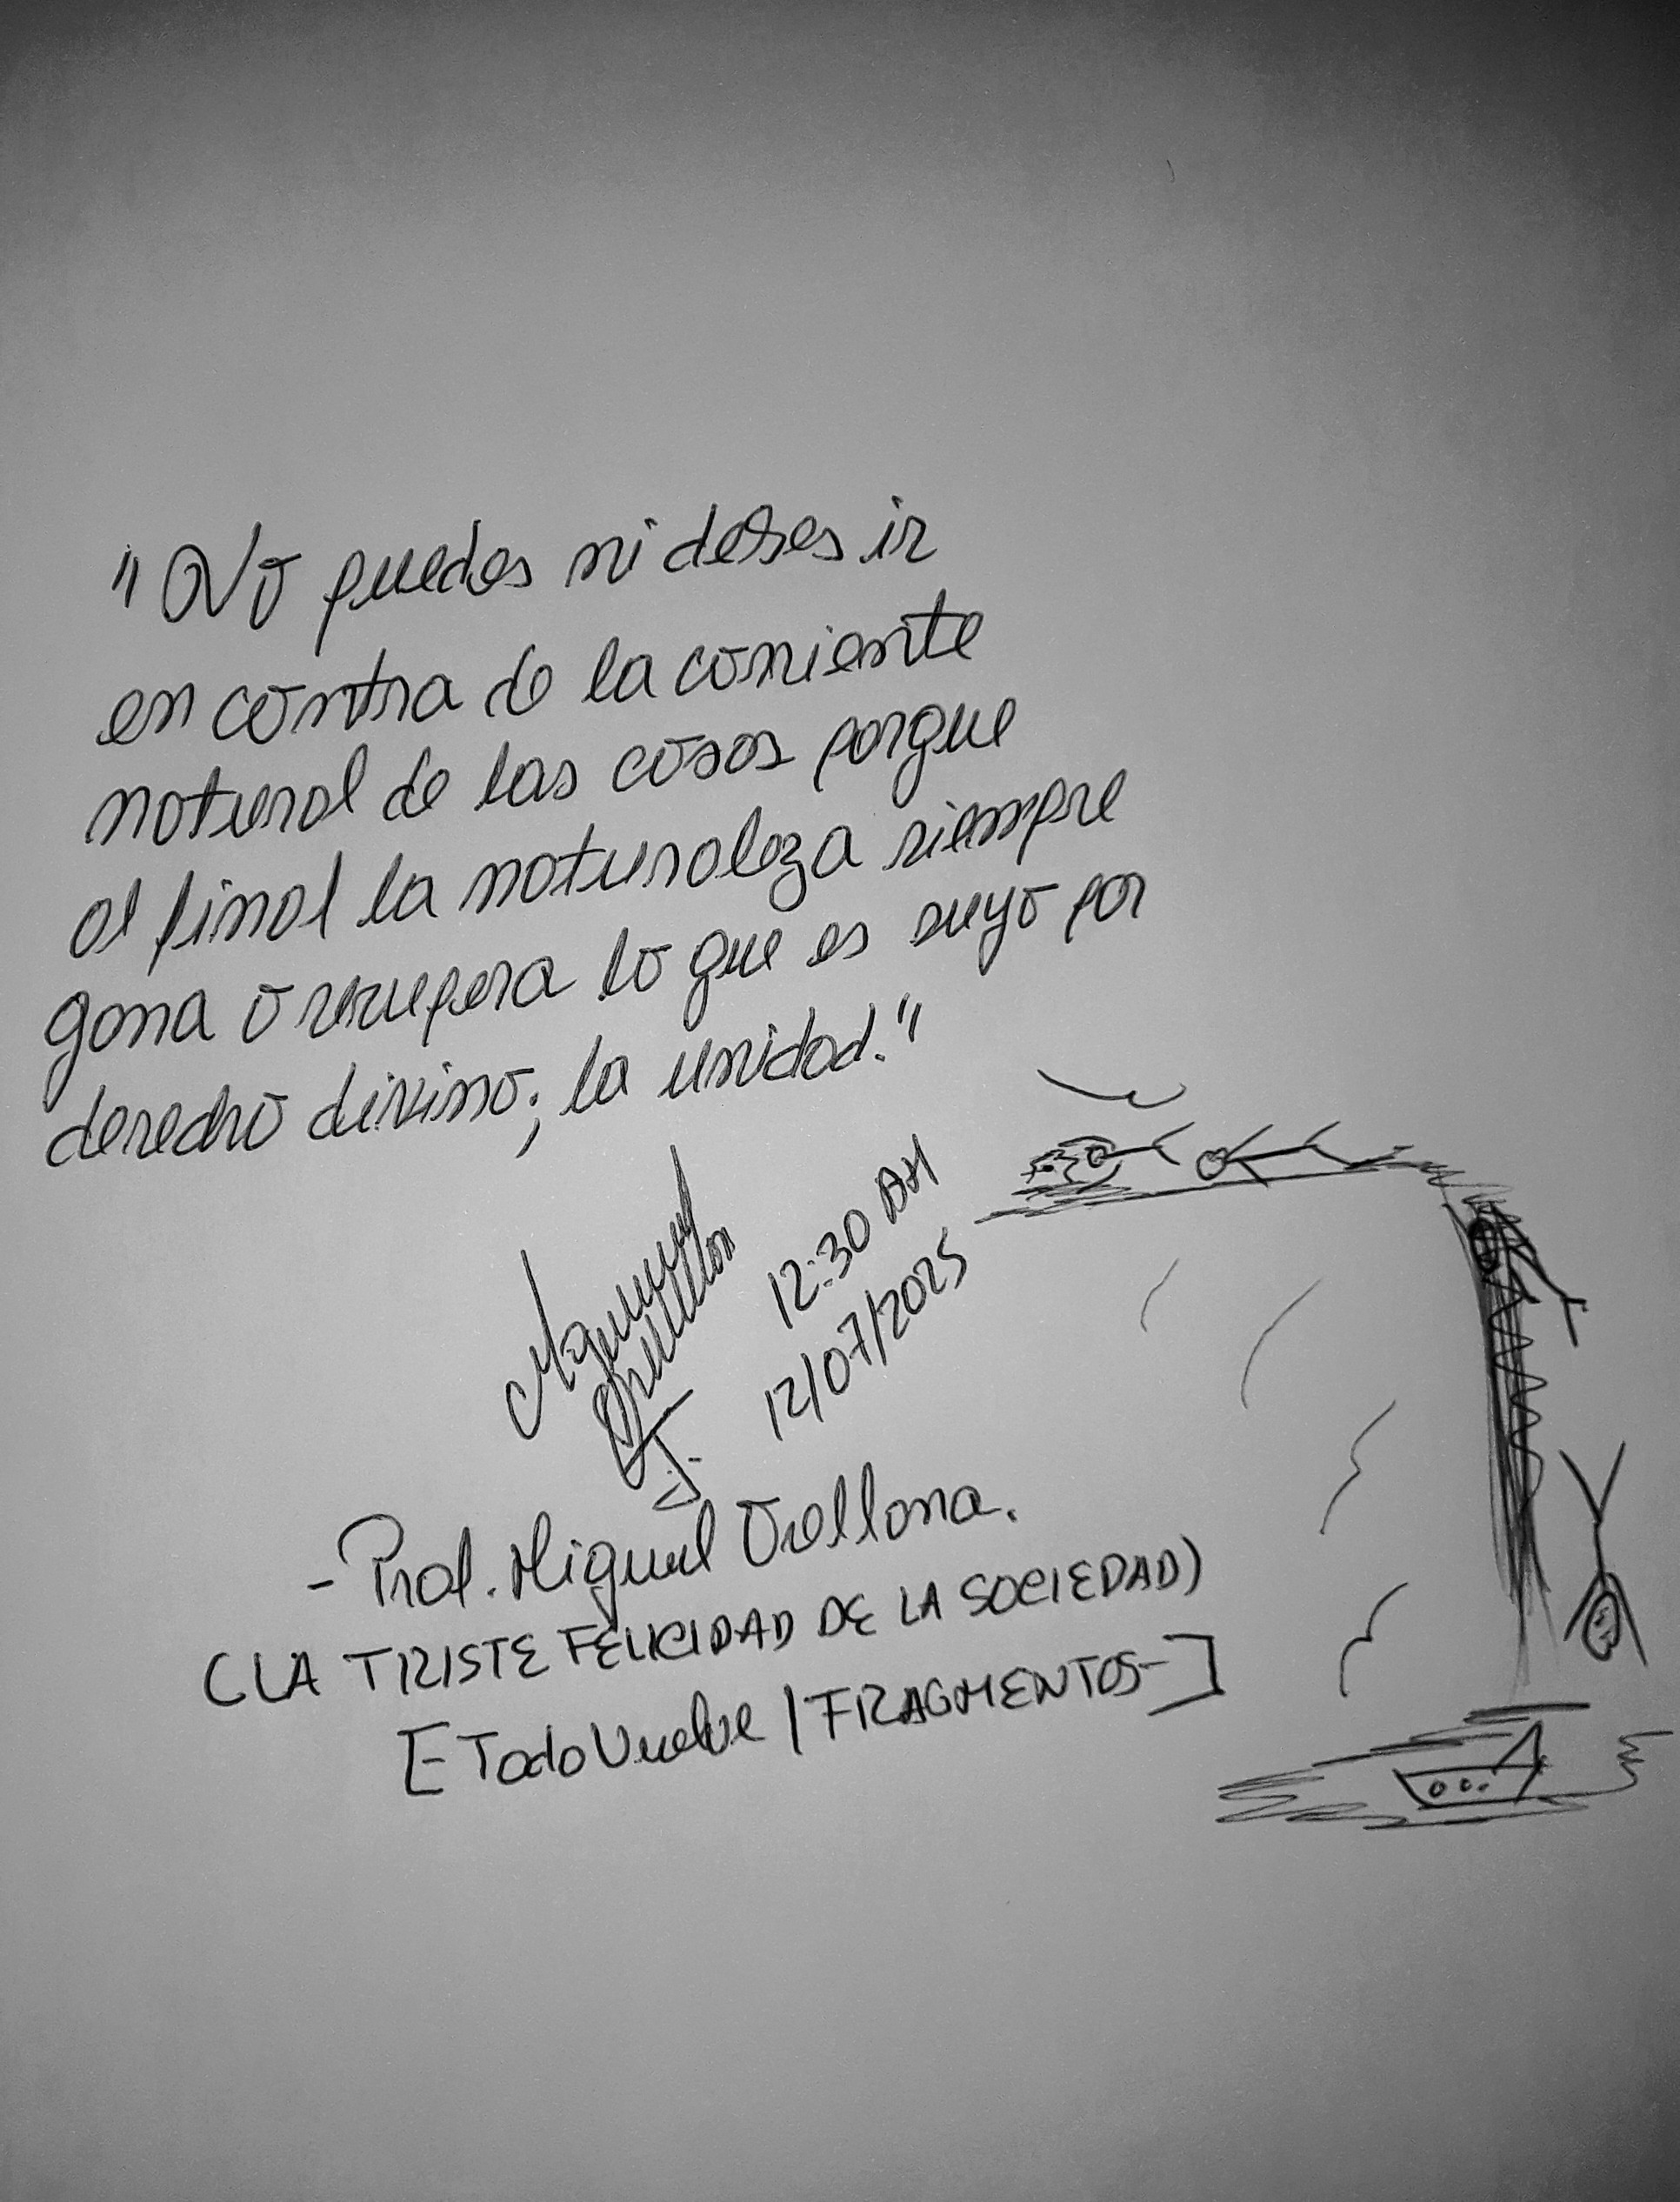 "No puedes ni debes ir
en contra de la corriente
natural de las cosas porque
al final la naturaleza siempre
gana o recupera lo que es suyo por
derecho divino; la unidad."
12:30 AM
12/07/2025
- Prof. Miguel Orellana.
(LA TRISTE FELICIDAD DE LA SOCIEDAD)
[Todo Vuelve / FRAGMENTOS-]